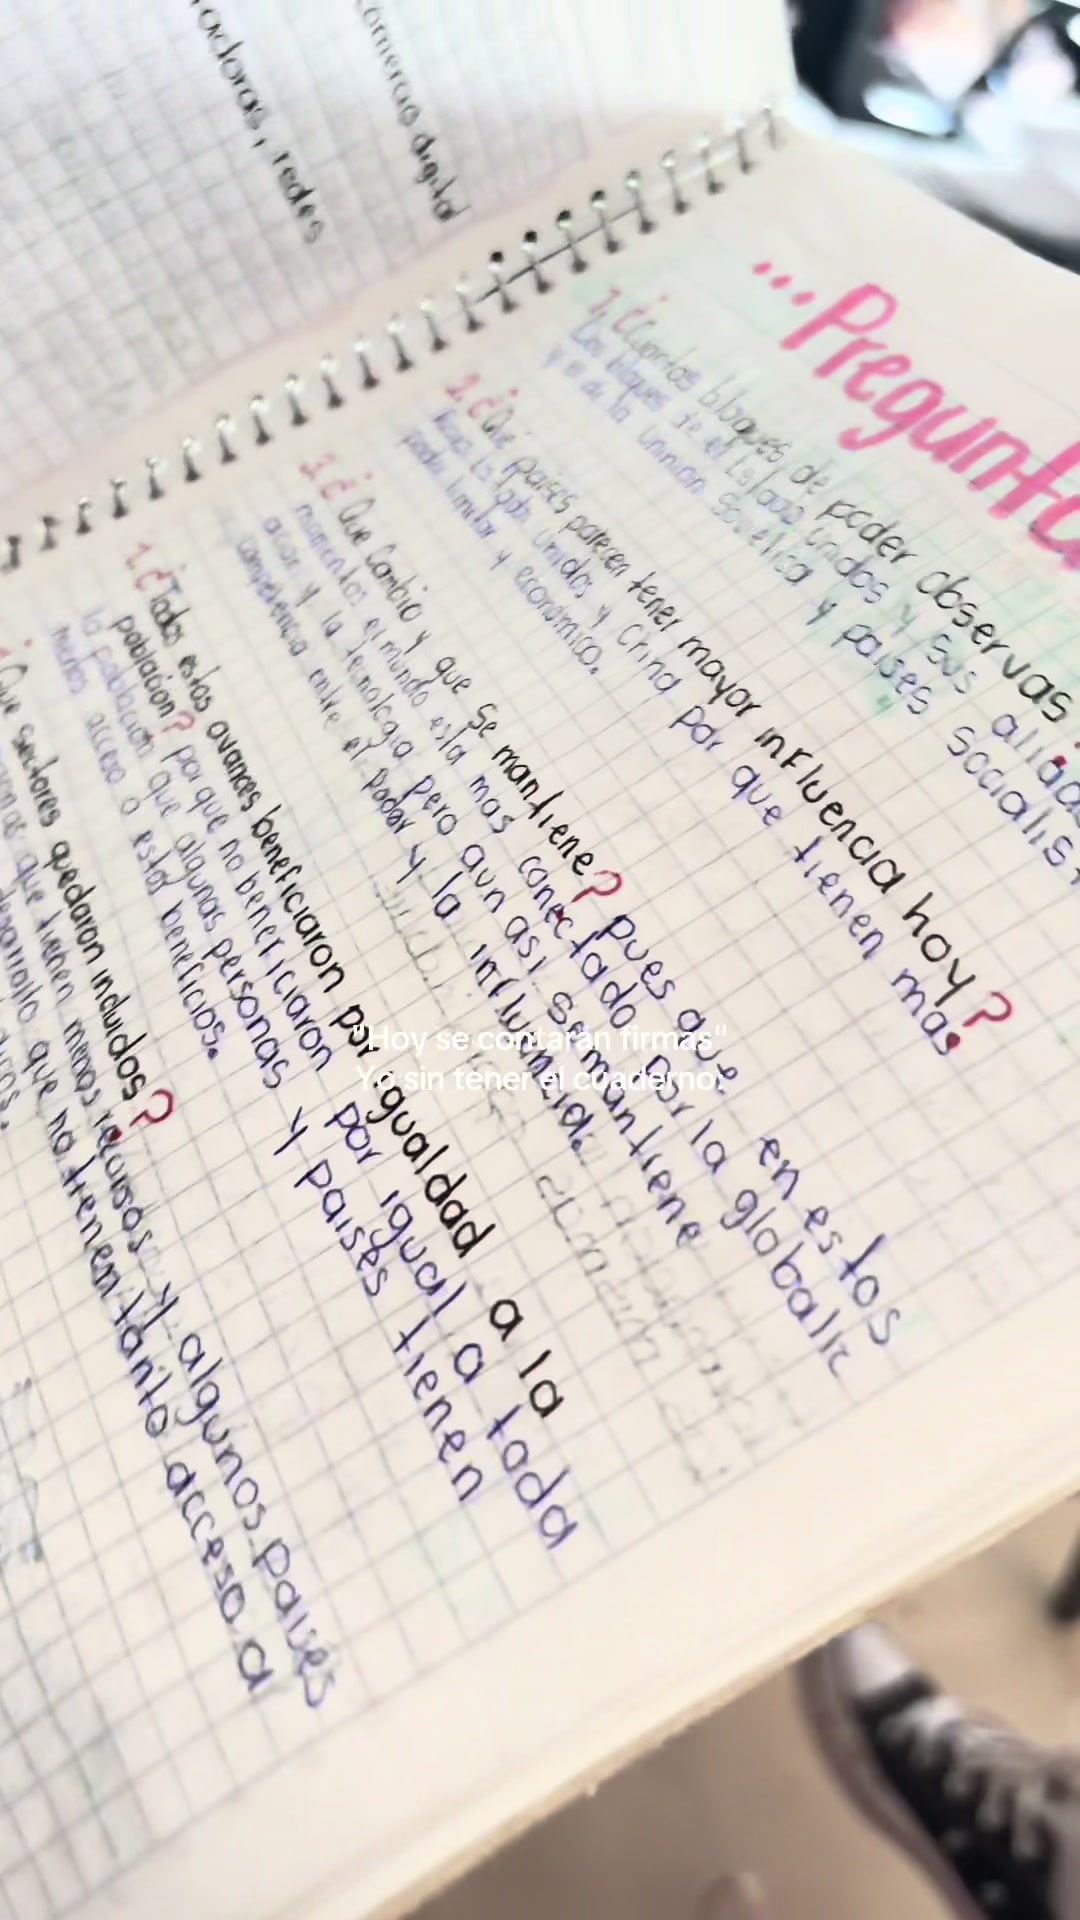 comercio digital
adoras, redes
...Pregunta
1. ¿Cuantos bloques de poder observas?
Los bloques de el Estado Unidos y sus aliad
y el de la union Sovietica y paises socialist
2. ¿Que paises parecen tener mayor influencia hoy?
Estados unidos y China por que tienen mas
poder militar y económico.
3. ¿Que Cambio y que se mantiene? pues que en estos
momentos el mundo esta mas conectado por la globaliz
acion y la tecnologia pero aun asi se mantiene
competencia entre el poder y la influencia.
1. ¿Todos estos avances beneficiaron por igualdad a la
poblacion? por que no beneficiaron por igual a toda
la poblacion que algunas personas y paises tienen
menos acceso a estos beneficios.
¿Que sectores quedaron incluidos?
que tienen menos recursos y algunos paises
desarrollo que no tienen tanto acceso a
"Hoy se contarán firmas"
Yo sin tener el cuaderno: